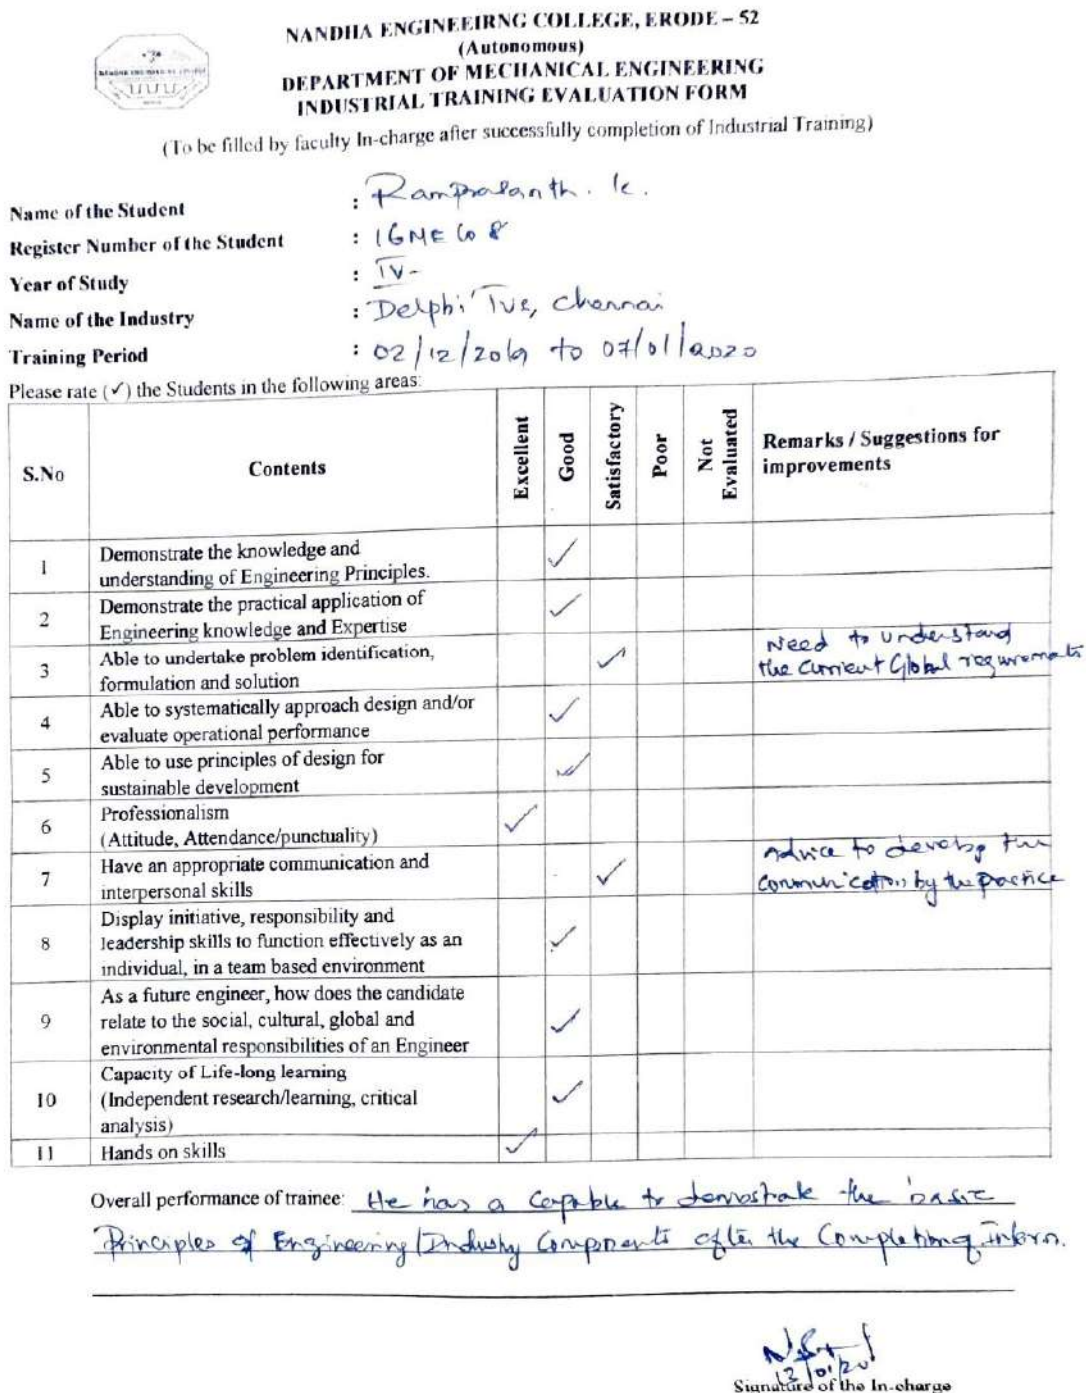 NANDHA ENGINEEIRNG COLLEGE, ERODE – 52
(Autonomous)
DEPARTMENT OF MECHANICAL ENGINEERING
INDUSTRIAL TRAINING EVALUATION FORM
(To be filled by faculty In-charge after successfully completion of Industrial Training)
Name of the Student : Ramprasanth. K.
Register Number of the Student : 16ME608
Year of Study : IV-
Name of the Industry : Delphi TVS, Chennai
Training Period : 02/12/2019 to 07/01/2020
Please rate (✓) the Students in the following areas:
S.No Contents Excellent Good Satisfactory Poor Not Evaluated Remarks / Suggestions for improvements
1 Demonstrate the knowledge and
understanding of Engineering Principles. ✓
2 Demonstrate the practical application of
Engineering knowledge and Expertise ✓
3 Able to undertake problem identification,
formulation and solution ✓
Need to understand
the current Global requirements
4 Able to systematically approach design and/or
evaluate operational performance ✓
5 Able to use principles of design for
sustainable development ✓
6 Professionalism
(Attitude, Attendance/punctuality) ✓
7 Have an appropriate communication and
interpersonal skills ✓
Advice to develop the
communication by the practice
8 Display initiative, responsibility and
leadership skills to function effectively as an
individual, in a team based environment ✓
9 As a future engineer, how does the candidate
relate to the social, cultural, global and
environmental responsibilities of an Engineer ✓
10 Capacity of Life-long learning
(Independent research/learning, critical
analysis) ✓
11 Hands on skills ✓
Overall performance of trainee: He has a capable to demostrate the basic
Principles of Engineering/Industry Components after the Completion of Intern.
13/01/20
Signature of the In-charge